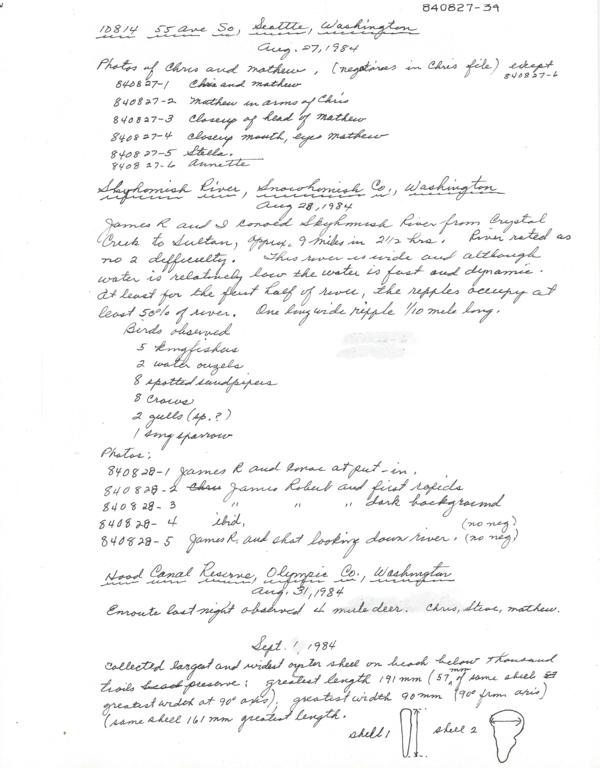 840827-39
10814 55 Ave So, Seattle, Washington
Aug. 27, 1984
Photos of Chris and mathew, (negatives in Chris file) except 840827-6
840827-1 Chris and mathew
840827-2 Mathew in arms of Chris
840827-3 Closeup of head of Mathew
840827-4 Closeup mouth, eyes Mathew
840827-5 Stella.
840827-6 Annette
Skyhomish River, Snowhomish Co., Washington
Aug 28, 1984
James R and I canoed Skyhmish River from Crystal
Creek to Sultan, approx. 9 miles in 2 1/2 hrs. River rated as
no 2 difficulty. This river is wide and although
water is relatively low the water is fast and dynamic.
At least for the first half of river, the repples occupy at
least 50% of river. One long wide ripple 1/10 mile long.
Birds observed
5 kingfishers
2 water ouzels
8 spotted sandpipers
8 crows
2 gulls (sp.?)
1 song sparrow
Photos:
840828-1 James R and canoe at put-in.
840828-2 Chris James Robert and first rapids
840828-3 " " " dark background
840828-4 ibid. (no neg)
840828-5 James R. and shot looking down river. (no neg)
Hood Canal Reserve, Olympic Co., Washington
Aug. 31, 1984
Enroute last night observed 4 mule deer. Chris, Steve, mathew.
Sept. 1, 1984
Collected largest and widest oyster shell on beach below Thousand
trails beach preserve: greatest length 191 mm (57 mm of same shell
greatest width at 90° axis); greatest width 90 mm (90° from axis)
(same shell 161 mm greatest length.
shell 1 shell 2